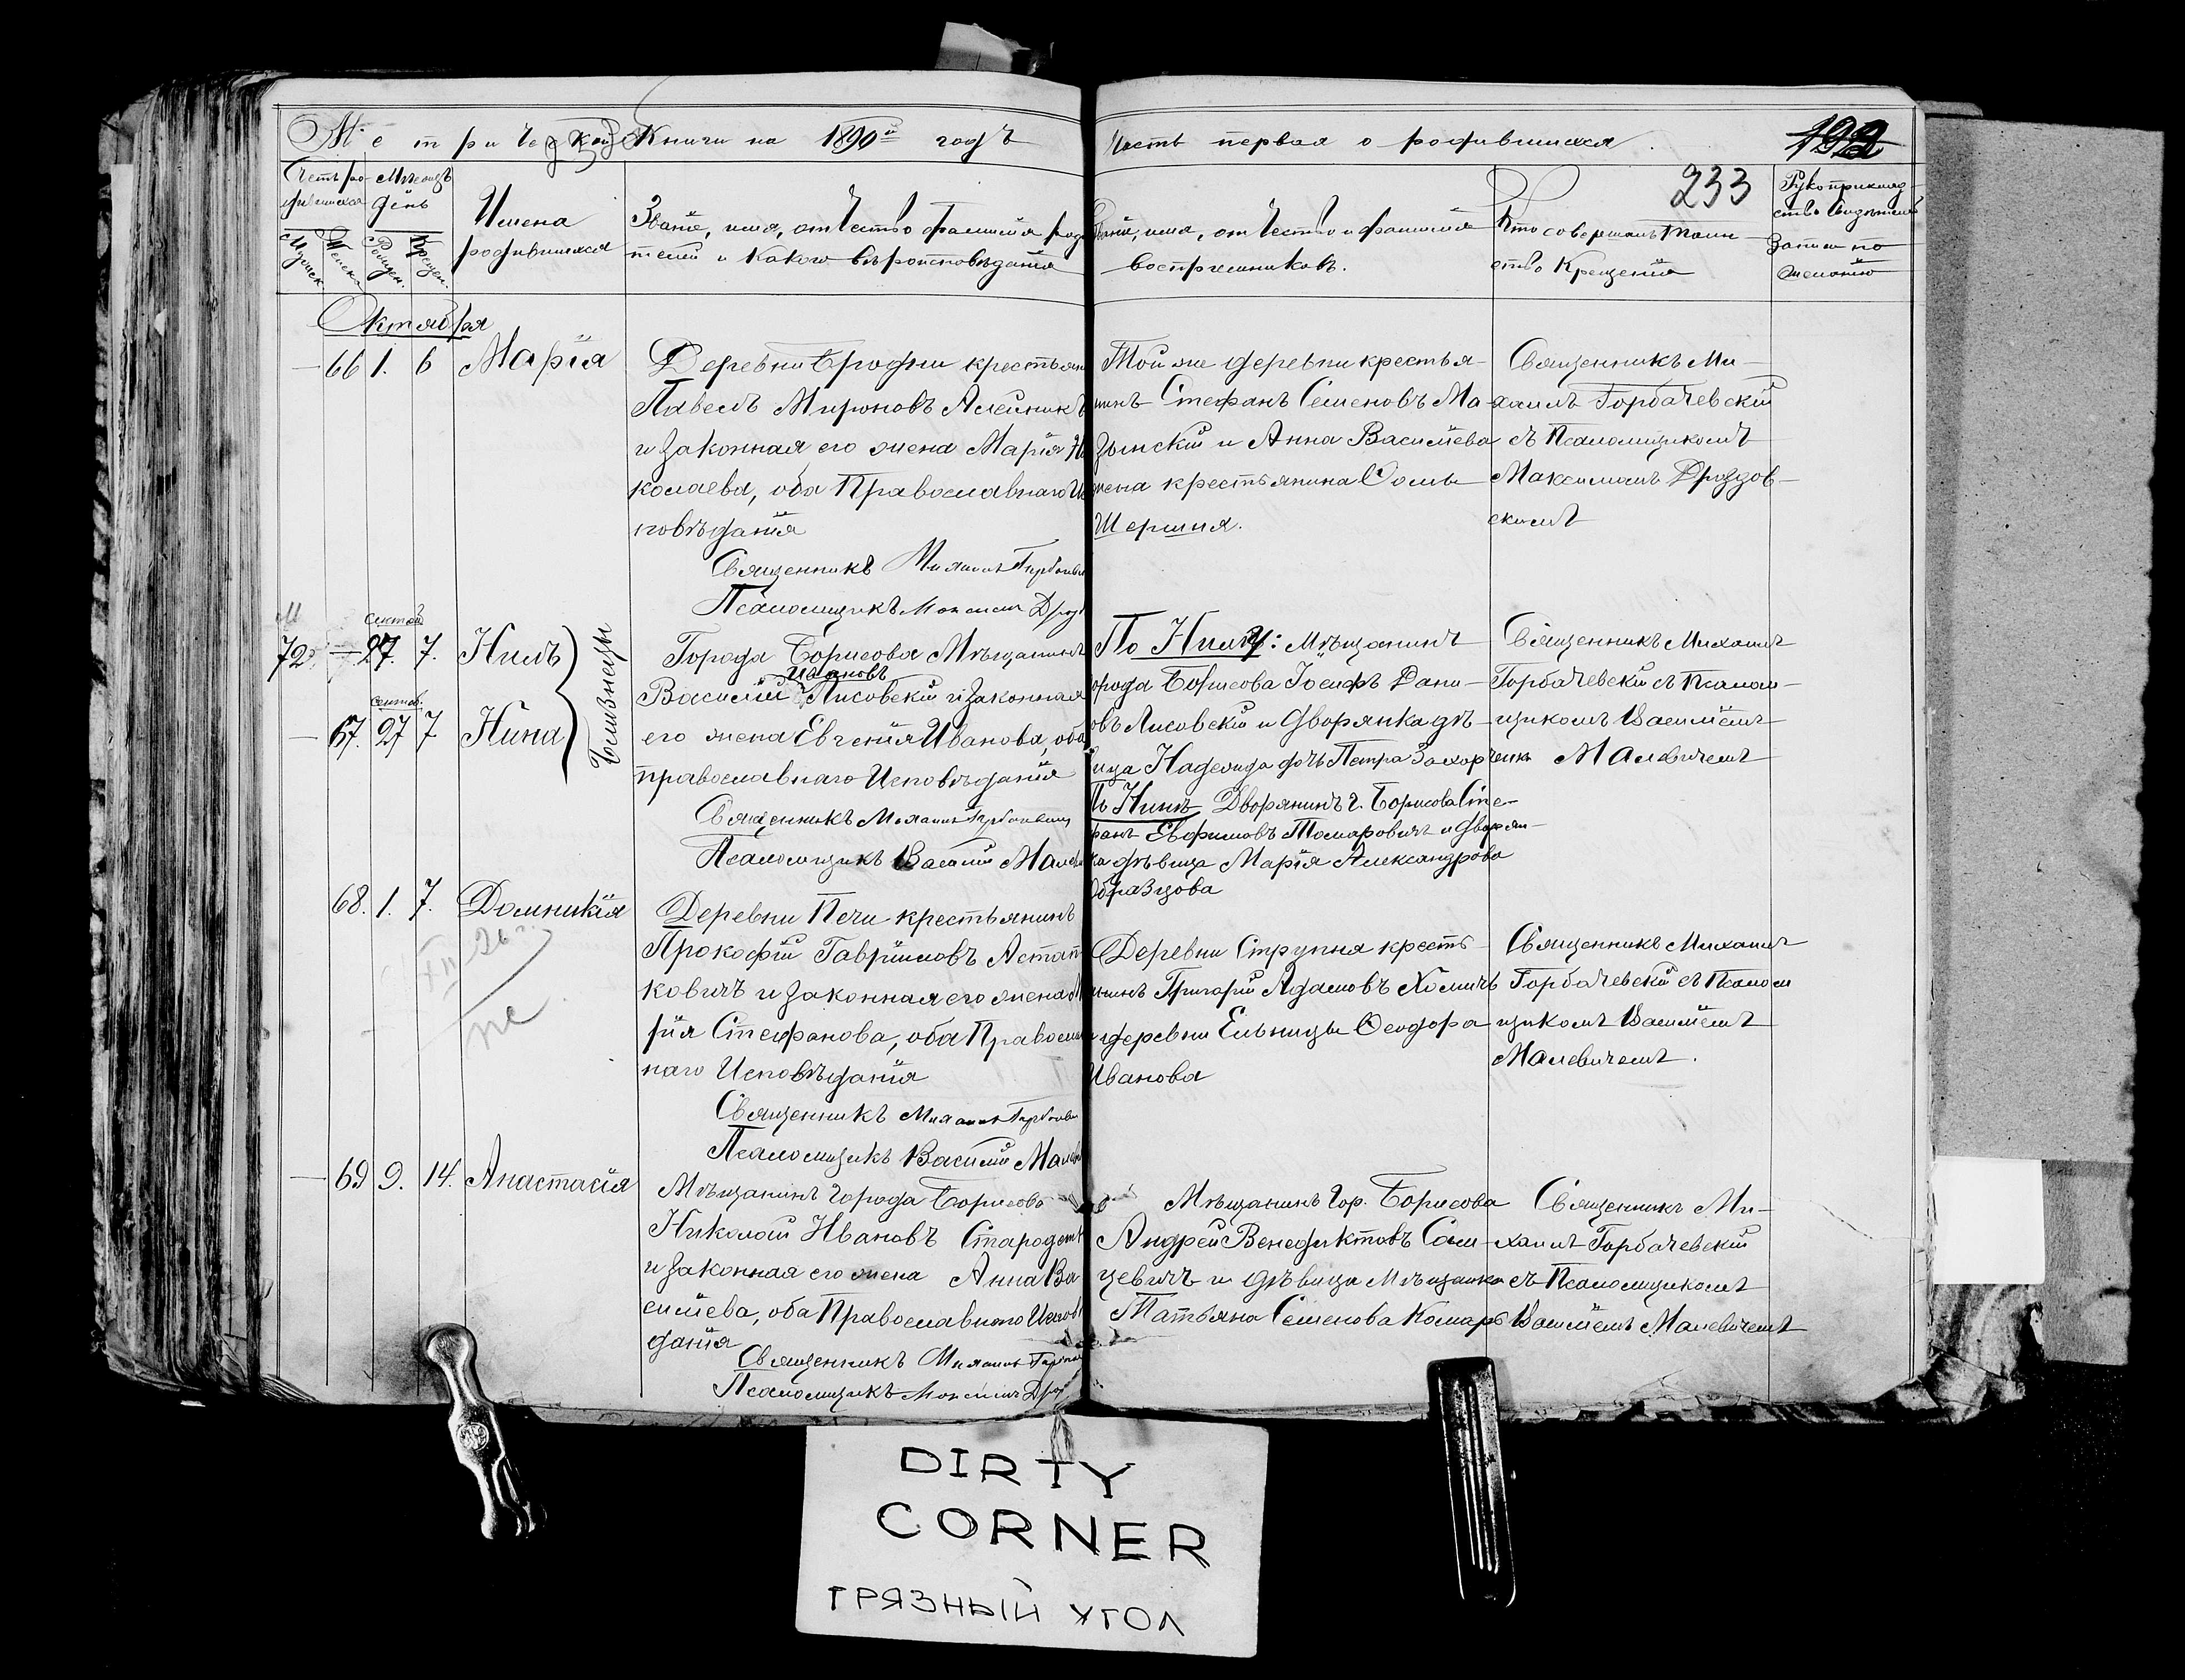 Метрической Книги на 1890й годъ
Часть первая о родившихся.
192
233
Счетъ ро-
дившихся
Мѣсяцъ
день
Мужеск.
Женск.
Рожден.
Крещен.
Имена
родившихся
Званіе, имя, отчество фамилія роди
телей и какого вѣроисповѣданія
Званіе, имя, отчество и фамилія
воспріемниковъ.
Кто совершалъ таин
ство Крещенія
Рукоприклад-
ство свидѣтелей
записи по
желанію
Октября
— 66 1. 6 Марія
Деревни Бродни крестьяни
Павелъ Мироновъ Алейникъ
и законная его жена Марія Ни
колаева, оба Православнаго Ис
повѣданія
Священникъ Михаилъ Горбачев
Псаломщикъ Максимъ Дроз
Той же деревни крестья-
нинъ Стефанъ Семеновъ Ма-
зынскій и Анна Василіева
жена крестьянина Сомы
Шершня.
Священникъ Ми-
хаилъ Горбачевскій
съ Псаломщикомъ
Максимомъ Дроздов-
скимъ
М
сентяб
72. — 27. 7. Нилъ
сентяб.
— 67. 27 7 Нина
Близнецы
Города Борисова Мѣщанинъ
Ивановъ
Василій Лисовскій и законная
его жена Евгенія Иванова, оба
православнаго Исповѣданія
Священникъ Михаилъ Горбачевскій
Псаломщикъ Василій Малев
По Нилу: Мѣщанинъ
города Борисова Іосифъ Дани-
овъ Лисовскій и дворянка дѣ-
ица Надежда дочь Петра Захорченка
По Нинѣ Дворянинъ г. Борисова Сте-
фанъ Евфимовъ Томаровичъ и дворян-
ка дѣвица Марія Александрова
Образцова
Священникъ Михаилъ
Горбачевскій съ Псалом-
щикомъ Василіемъ
Малевичемъ
68. 1. 7. Домникія
XII 26 г.
Деревни Печи крестьянинъ
Прокофій Гавріиловъ Астап
ковичъ и законная его жена М
рія Стефанова, оба Православ
наго Исповѣданія
Священникъ Михаилъ Горбачев
Псаломщикъ Василій Малев
Деревни Струпня кресть-
янинъ Григорій Адамовъ Хомичъ
и деревни Ельницы Ѳеодора
Иванова
Священникъ Михаилъ
Горбачевскій съ Псалом
щикомъ Василіемъ
Малевичемъ.
— 69 9. 14. Анастасія
Мѣщанинъ города Борисова
Николай Ивановъ Стародет
и законная его жена Анна Ва
силіева, оба Православнаго Исповѣ
данія
Священникъ Михаилъ Горбач
Псаломщикъ Максимъ Дроз
Мѣщанинъ гор. Борисова
Андрей Венедиктовъ Сом-
цевичъ и дѣвица Мѣщанка
Татьяна Семенова Комаръ
Священникъ Ми-
хаилъ Горбачевскій
съ Псаломщикомъ
Василіемъ Малевичемъ
DIRTY
CORNER
ГРЯЗНЫЙ УГОЛ